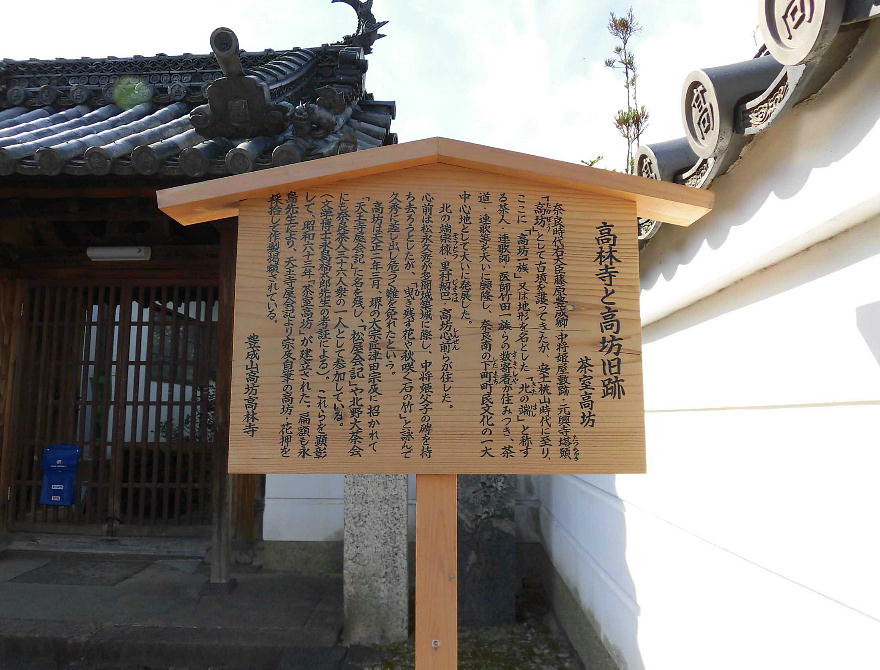 高林寺と高坊旧跡
茶室高坊
奈良時代右大臣藤原豊成卿・中将姫屋敷跡・元興寺塔頭
「高坊」として古墳を護ってきたが、安土桃山時代に至り、
ここに「高坊一族」又は地形を名とした「北の端」と称す
る茶人・連歌師・医師竹田一族らの数寄者が住みつき、茶
道・連歌等大いに興隆し、奈良南の下町町民文化の一大
中心地として大いに発展した。
北の端宗株・里村紹巴・高坊心前らが住した。
心前は松永久秀が多聞城築城に際し、中将姫父子の碑を持
ち去ろうとしたが、「曳き残す花や秋咲く石の竹」と詠んで
久秀に差し出し危うく難を免れたという。
高坊は天正十二年二月、堺の大宗匠津田宗及に招かれて
「天王寺屋会記」に名を残し、「松屋会記」や北野大茶会
に「奈良茶人三十六人衆」の一人として参加している。
(文学博士永島福太郎先生の考証による)。これらを顕彰
して、昭和六十三年、「茶室高坊」が建立された。扁額も永
島先生により、天王寺屋会記より宗及自筆の高坊・花押を
採拾して制作掲額されている。
豊成山高坊高林寺
高
高